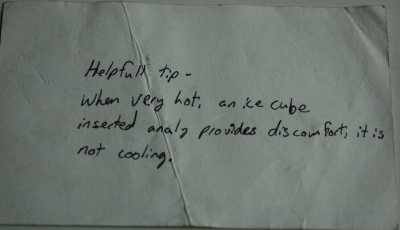 Helpfull tip -
When very hot, an ice cube
inserted analy provides discomfort, it is
not cooling.